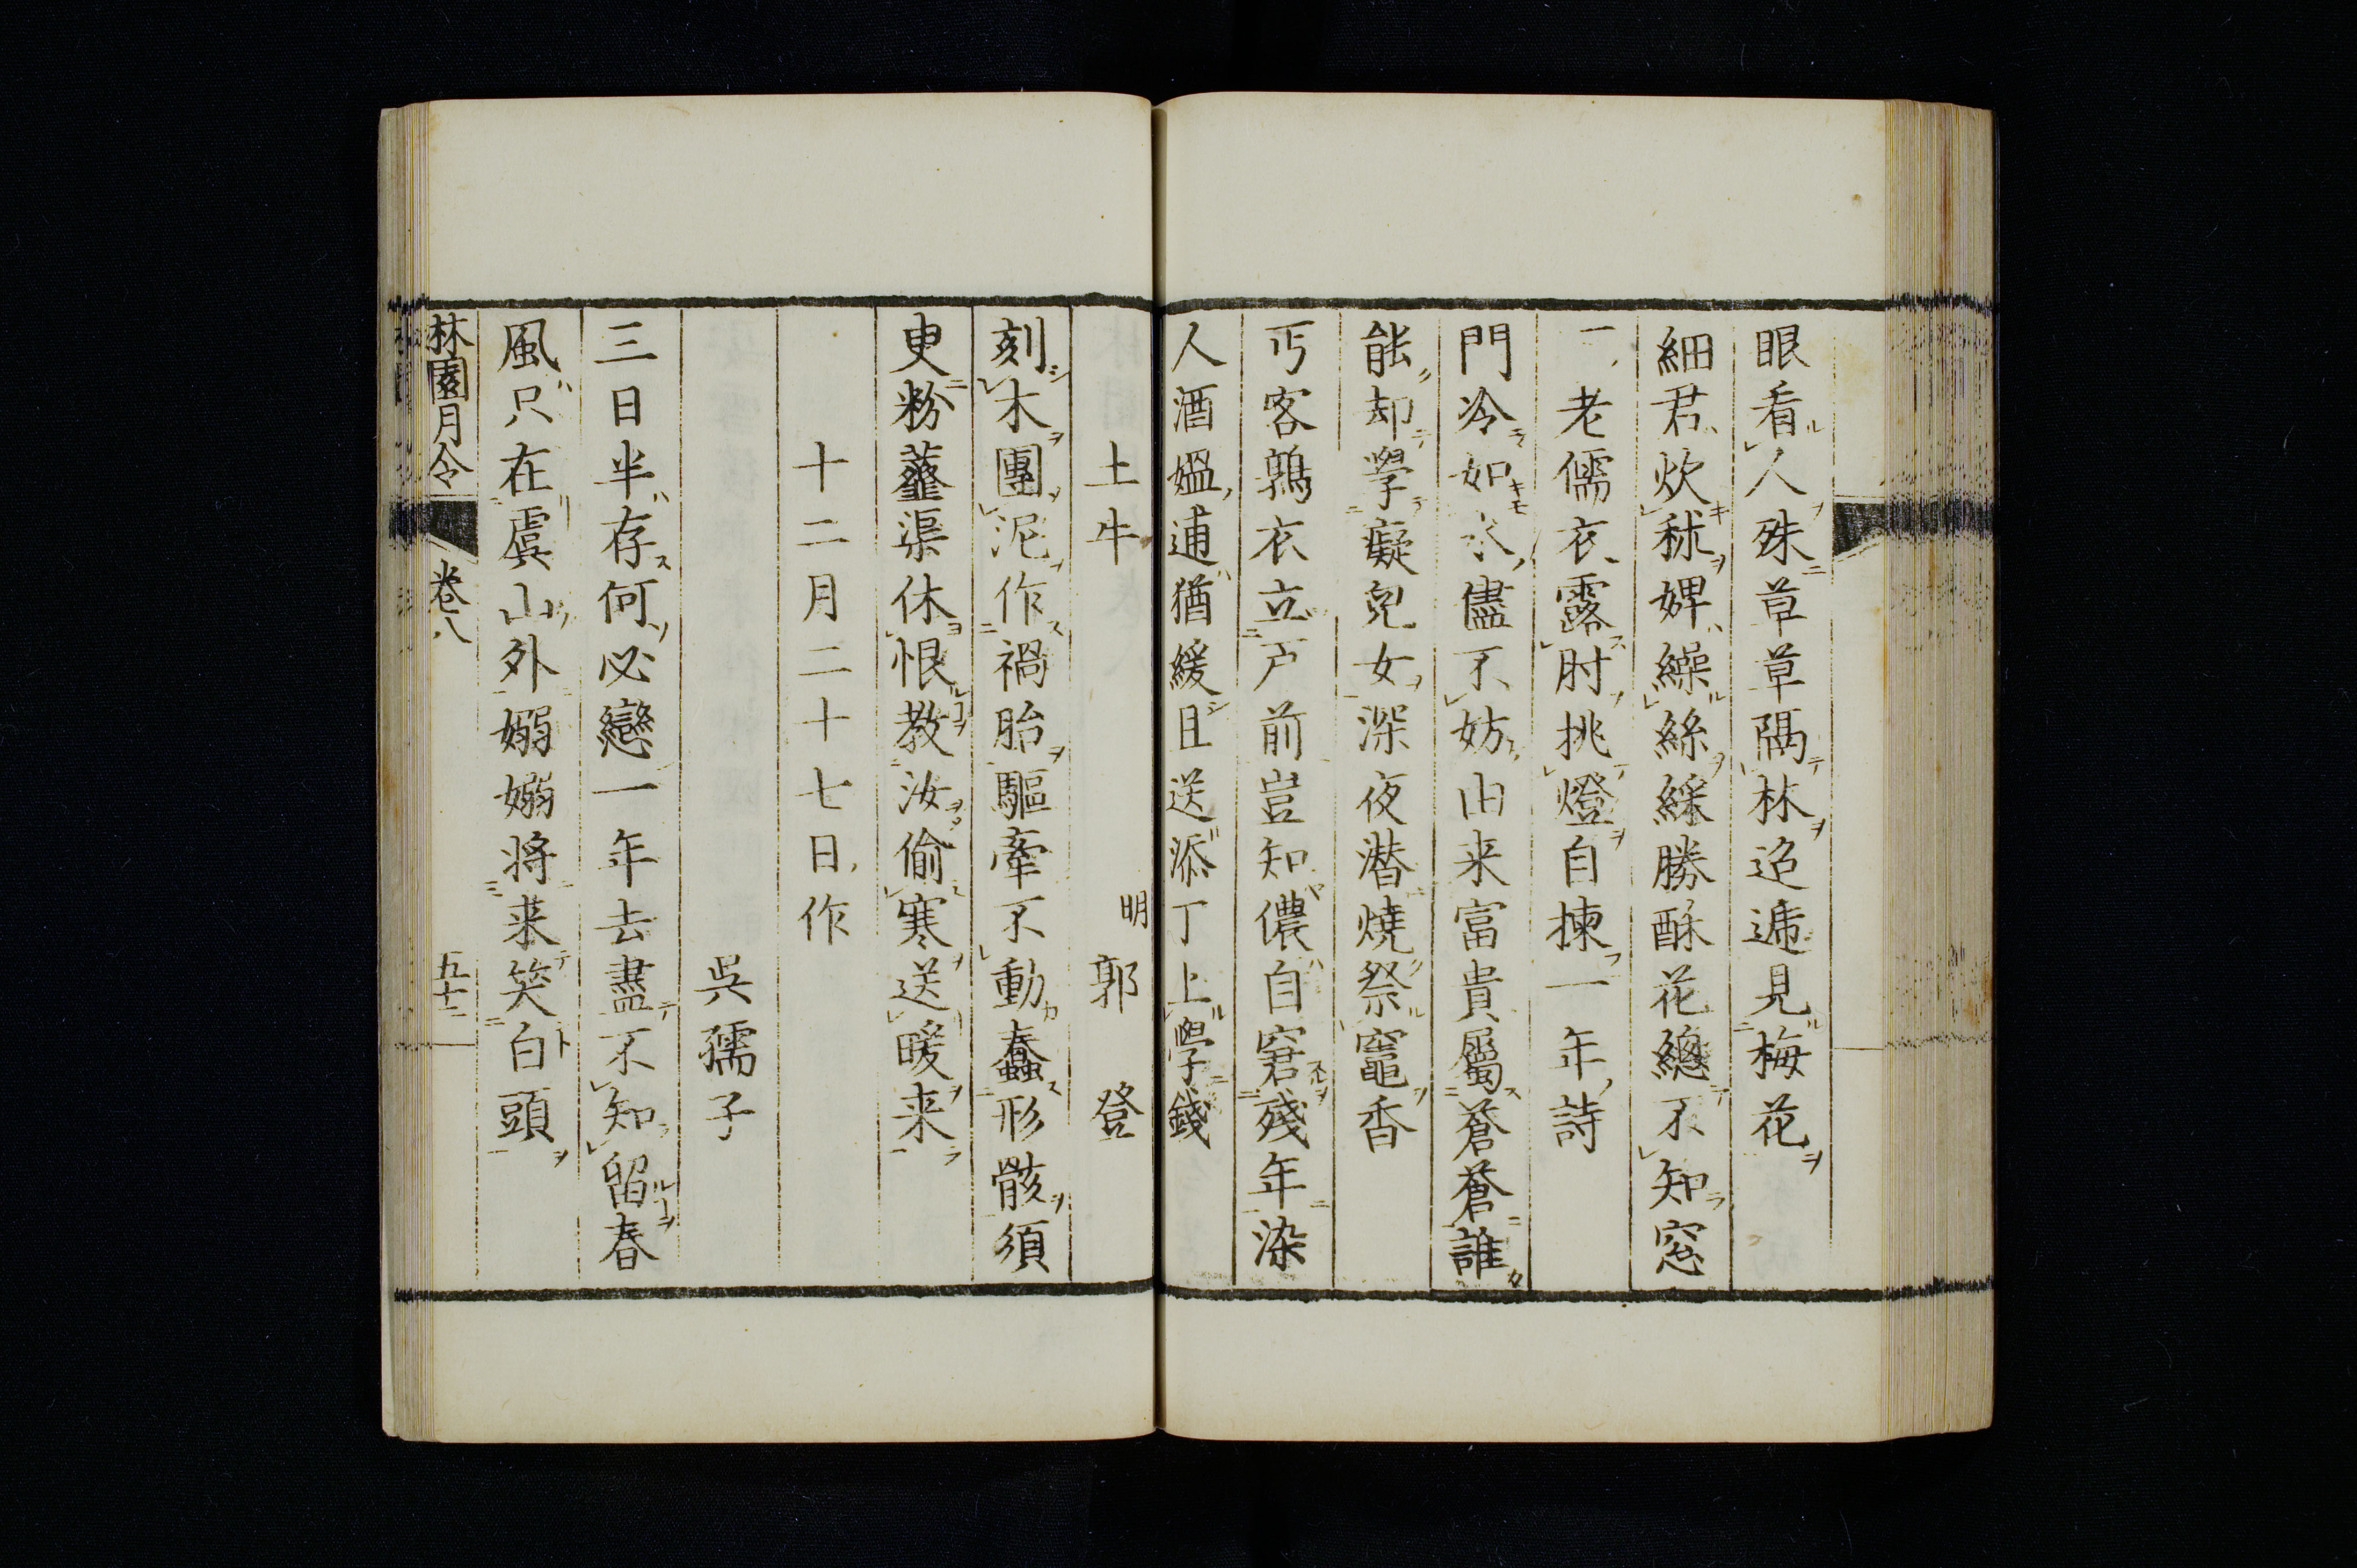 眼看人殊草草隔林迢遞見梅花
細君炊秫婢繰絲綵勝酥花總不知窓
一老儒衣露肘挑燈自揀一年詩
門冷如氷儘不妨由来富貴屬蒼蒼誰
能却學癡兒女深夜潜燒祭竈香
丐客鶉衣立戶前豈知儂自窘殘年染
人酒媼逋猶緩且送添丁上學錢
土牛
明 郭登
刻木團泥作禍胎驅牽不動蠢形骸須
更粉虀渠休恨教汝偷寒送暖来
十二月二十七日作
吳孺子
三日半存何必戀一年去盡不知留春
風只在虞山外嫋嫋将来笑白頭
林園月令
卷八
五十二